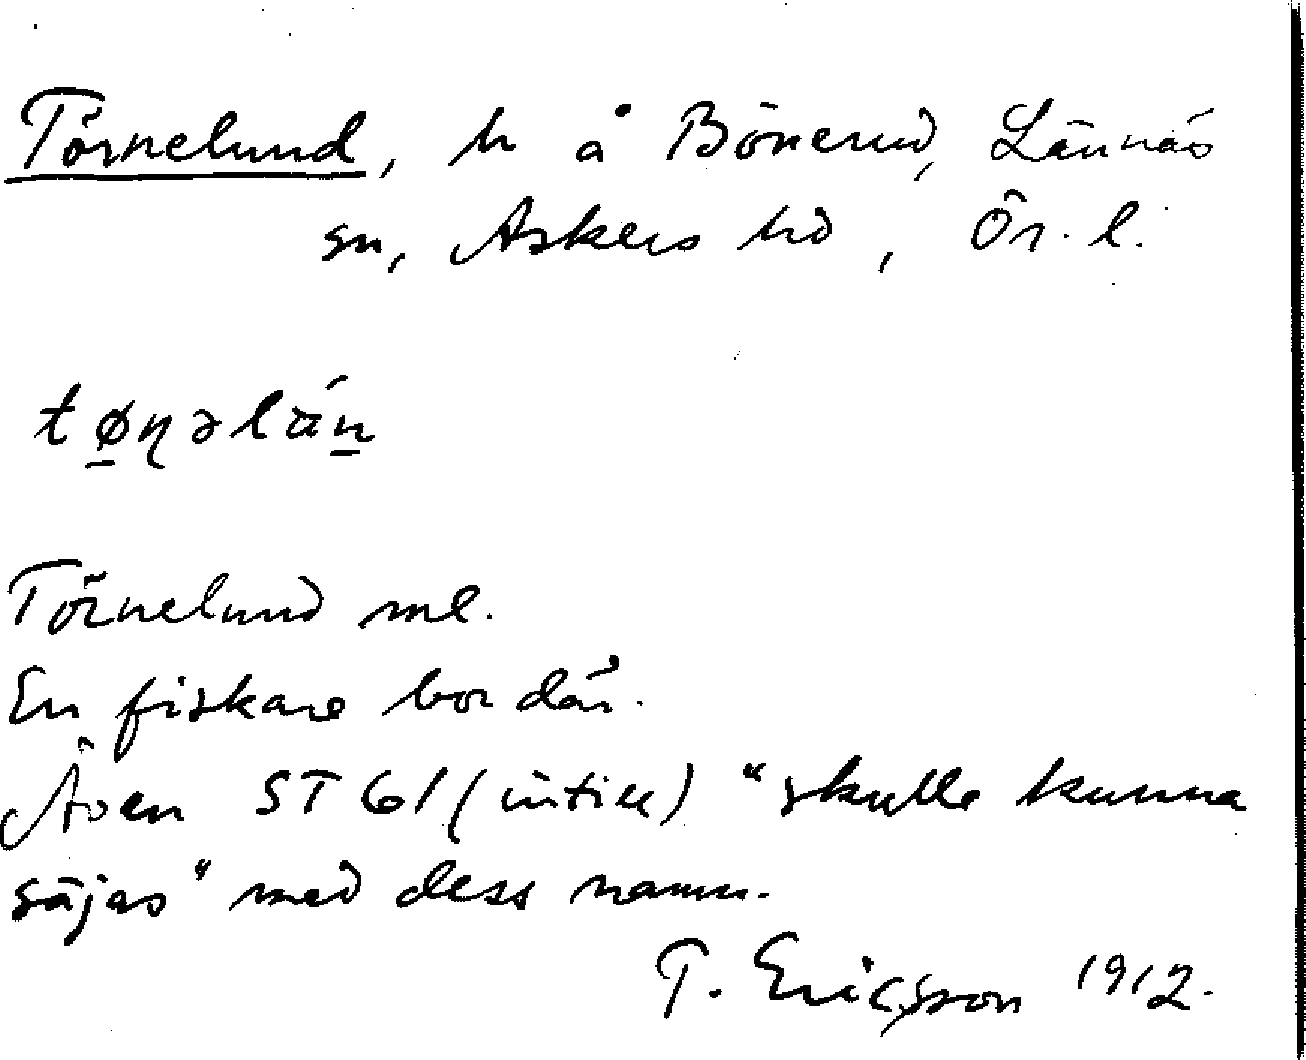 Törnelund, h å Bönerud, Lännäs
sn, Askers hd, Ör. l.
tø̱ɳəlán̠
Törnelund ml.
En fiskare bor där.
Även ST 61 (intill) "skulle kunna
säjas" med dess namn.
T. Ericsson 1912.